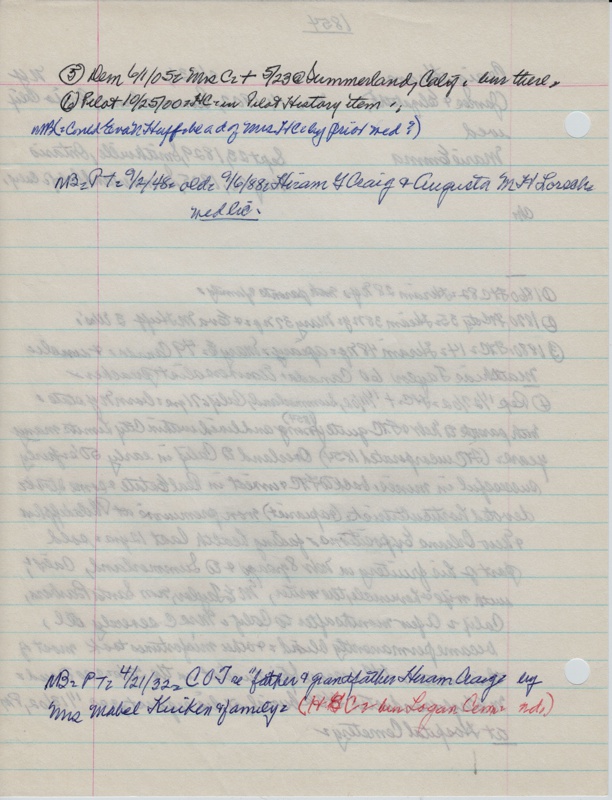 ⑤ Dem 6/1/05= Mrs C= + 5/23 @ Summerland, Calif, bur there.
⑥ Pilot 10/25/00= HC= in Pilot History item.
NB= Could Eva N Huff be a d of Mrs. HC by prior wed?)
NB= PT= 9/2/48= olds 9/6/88= Hiram G Craig & Augusta M H Lorsch=
wed lic.
NB= PT= 4/21/32= C O T = "father & grandfather Hiram Craig" by
Mrs Mabel Kuiken & family= (H C= bur Logan Cem= nd.)